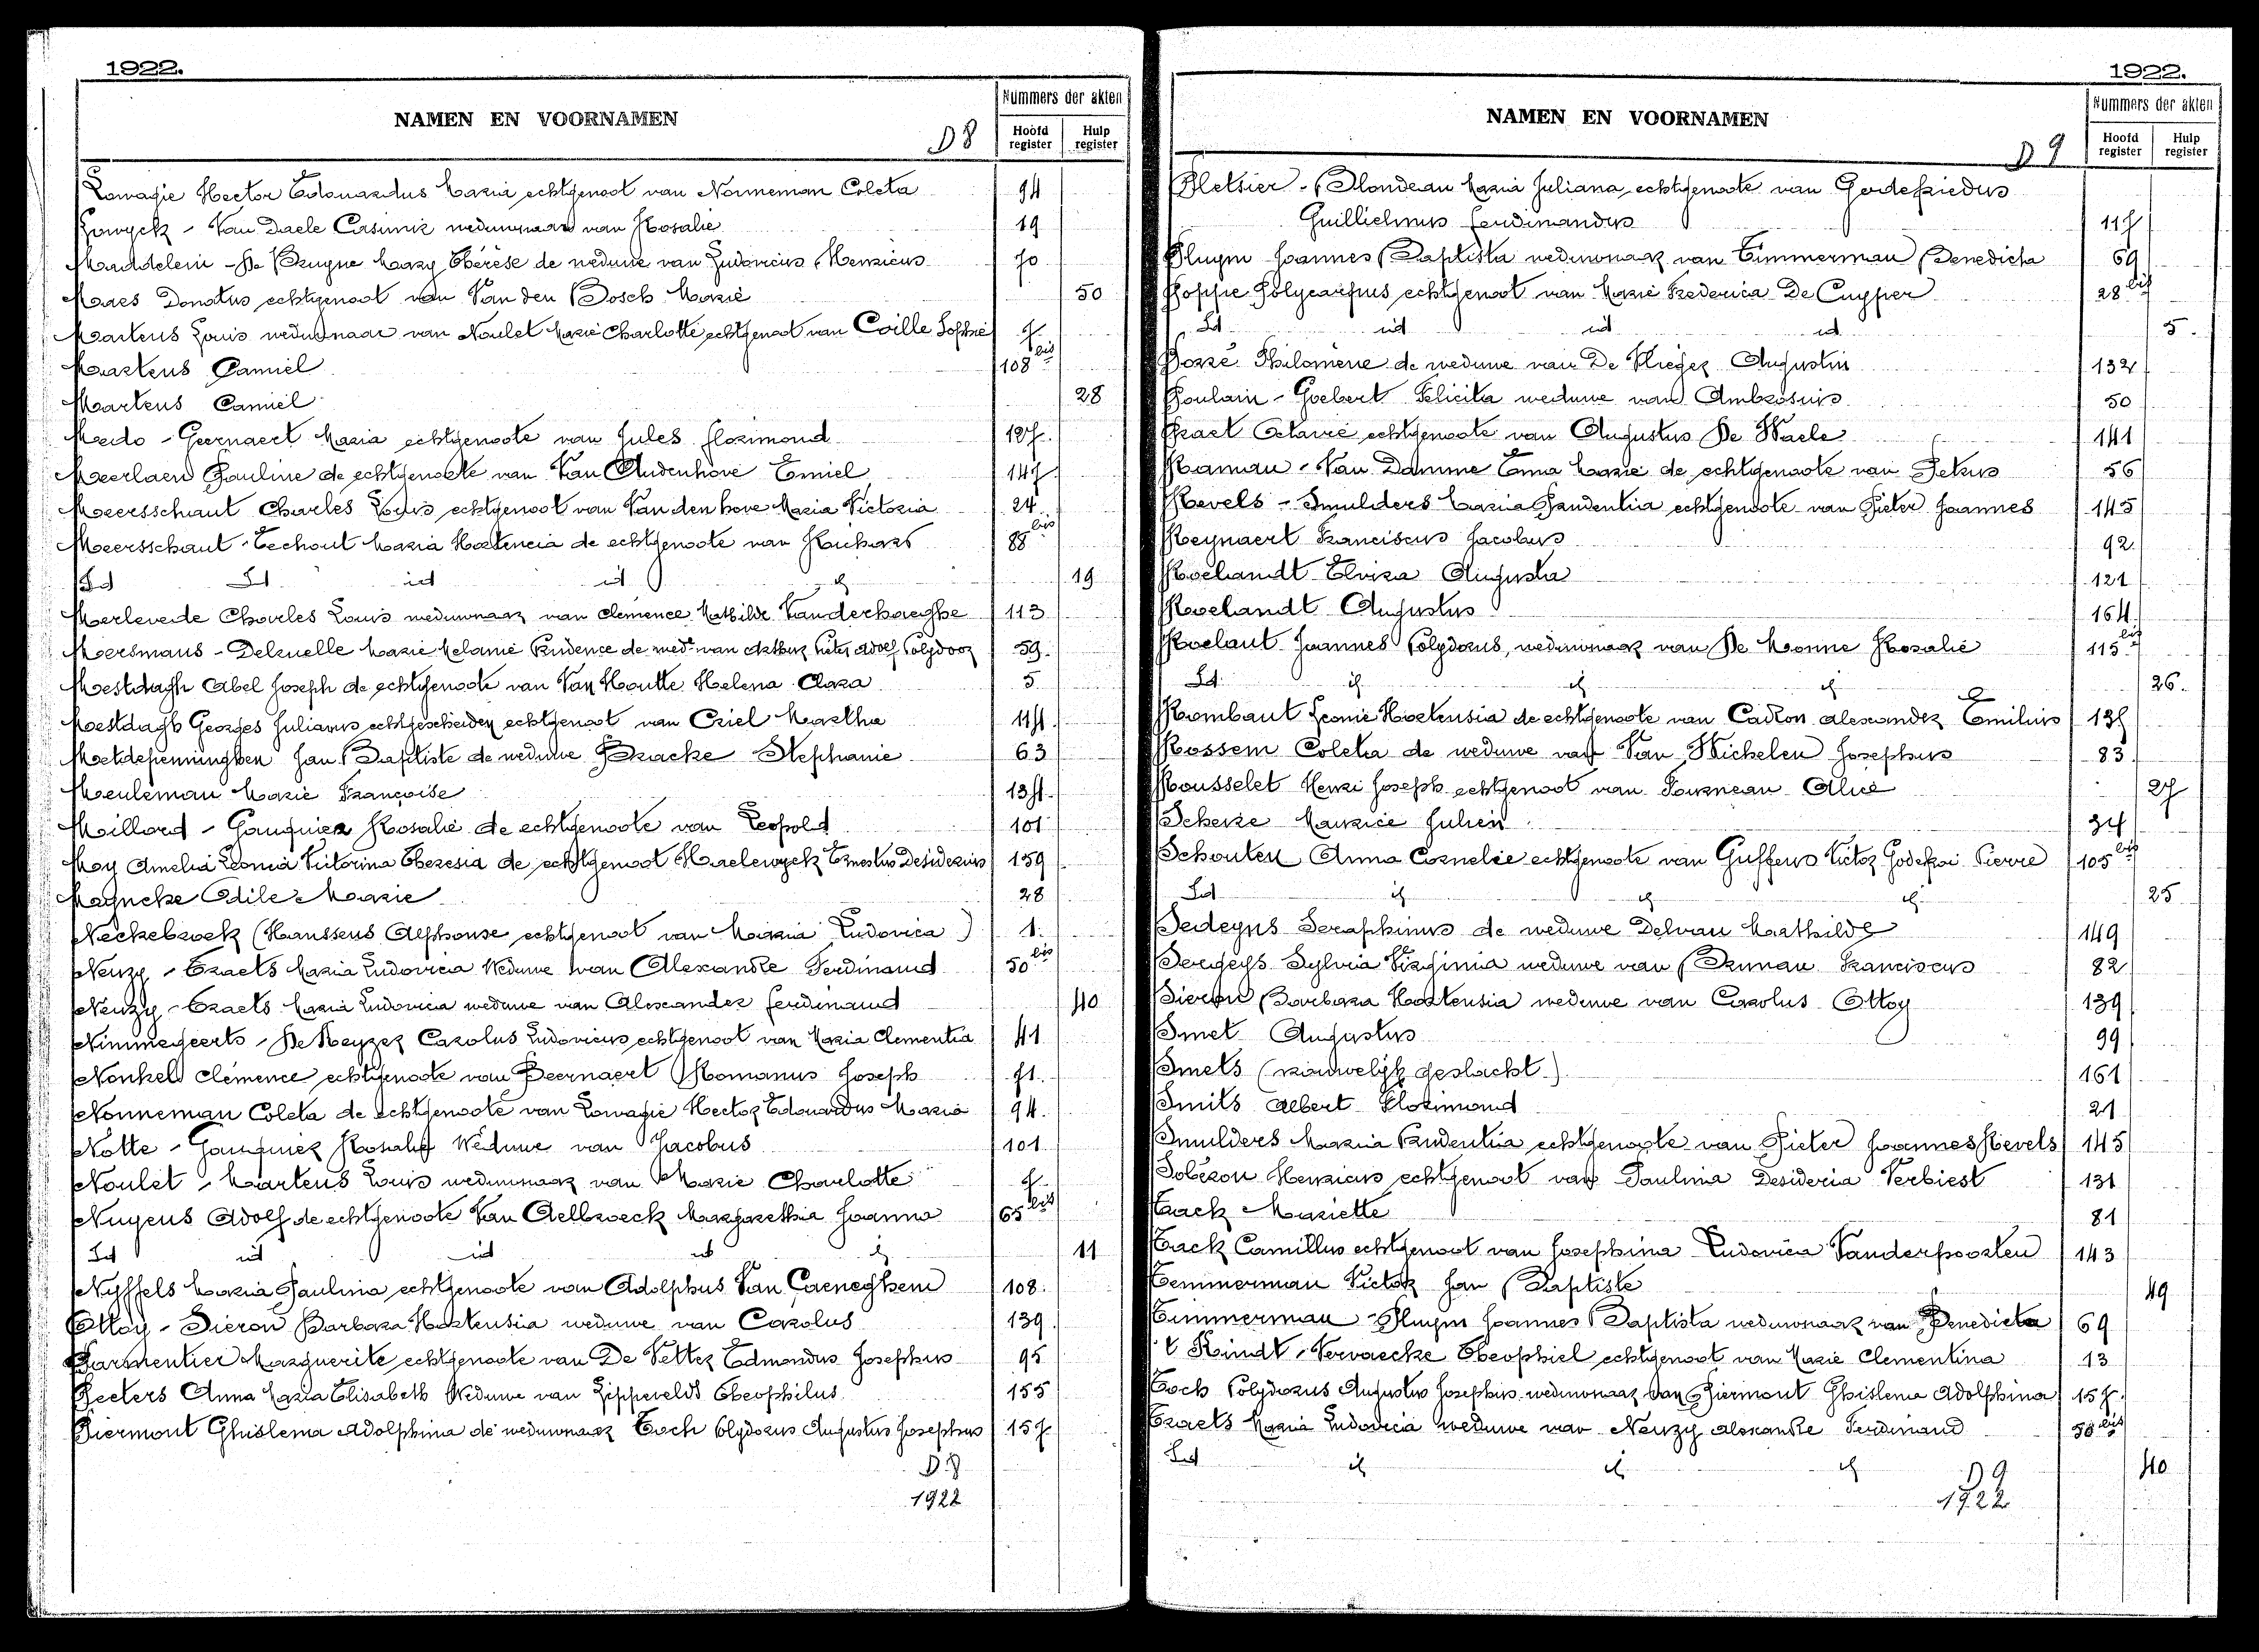 1922.
NAMEN EN VOORNAMEN
D8
Nummers der akten
Hoofd register
Hulp register
Lowagie Hector Edouardus Maria echtgenoot van Nonneman Coleta 94
Lowyck - Van Daele Casimir weduwnaar van Rosalie 19
Maddelein - De Bruyne Mary Thérèse de weduwe van Ludovicus Henricus 70
Maes Donatus echtgenoot van Van den Bosch Marie 50
Martens Louis weduwnaar van Noulet Marie Charlotte echtgenoot van Coille Sophie 7
Martens Camiel 108 bis
Martens Camiel 28
Medo - Geernaert Maria echtgenoote van Jules Florimond 127
Meerlaen Pauline de echtgenoote van Van Audenhove Emiel 147
Meersschaut Charles Louis echtgenoot van Van den hove Maria Victoria 24
Meersschaut - Eechout Maria Hortencia de echtgenoote van Richard 88 bis
Id Id id id id 19
Merlevede Charles Louis weduwnaar van Clemence Mathilde Vanderhaeghe 113
Mersmans - Delruelle Marie Melanie Prudence de wed. van Arthur Pieter Adolf Polydoor 59
Mestdagh Abel Joseph de echtgenoote van Van Houtte Helena Clara 5
Mestdagh Georges Julianus echtgescheiden echtgenoot van Criel Martha 114
Metdepenninghen Jan Baptiste de weduwe Bracke Stephanie 63
Meuleman Marie Françoise 134
Millord - Gauquier Rosalie de echtgenoote van Leopold 101
Moy Amelia Leonia Victorina Theresia de echtgenoot Haelewyck Ernestus Desiderius 159
Muyncke Odile Marie 28
Neckebroek (Hanssens Alphonse echtgenoot van Maria Ludovica) 1
Neuzy - Traets Maria Ludovica Weduwe van Alexandre Ferdinand 50 bis
Neuzy - Traets Maria Ludovica weduwe van Alexander Ferdinand 40
Nimmegeerts - De Keyzer Carolus Ludovicus echtgenoot van Maria Clementia 41
Nonkel Clémence echtgenoote van Beernaert Romanus Joseph 71
Nonneman Coleta de echtgenoote van Lowagie Hector Edouardus Maria 94
Notte - Gauquier Rosalie Weduwe van Jacobus 101
Noulet - Martens Louis weduwnaar van Marie Charlotte 7
Nuyens Adolf de echtgenoote Van Aelbroeck Margarethia Joanna 65 bis
Id id id id id 11
Nyffels Maria Paulina echtgenoote van Adolphus Van Caeneghem 108
Ottoy - Sieron Barbara Hortensia weduwe van Carolus 139
Parmentier Marguerite echtgenoote van De Vetter Edmondus Josephus 95
Peeters Anna Maria Elisabeth Weduwe van Zippevelds Theophilus 155
Piermont Ghislema Adolphina de weduwnaar Toch Polydorus Augustus Josephus 157
D8
1922
1922.
NAMEN EN VOORNAMEN
D9
Nummers der akten
Hoofd register
Hulp register
Pletsier - Blondeau Maria Juliana echtgenoote van Godefriedus
Guillielmus Ferdinandus 117
Pluym Joannes Baptista weduwnaar van Timmerman Benedicta 69
Poppe Polycarpus echtgenoot van Marie Frederica De Cuyper 28 bis
Id id id id 5
Porré Philomène de weduwe van De Vlieger Augustin 132
Poulain - Goebert Felicita weduwe van Ambrosius 50
Praet Octavie echtgenoote van Augustus De Waele 141
Raman - Van Damme Emma Marie de echtgenoote van Petrus 56
Revels - Smulders Maria Prudentia echtgenoote van Pieter Joannes 145
Reynaert Franciscus Jacobus 92
Roelandt Elvira Augusta 121
Roelandt Augustus 164
Roelant Joannes Polydorus, weduwnaar van De Monne Rosalie 115 bis
Id id id id 26
Rombaut Leonie Hortensia de echtgenoote van Cadron Alexander Emilius 137
Rossem Coleta de weduwe van Van Wichelen Josephus 83
Rousselet Henri Joseph echtgenoot van Tourneau Alice 27
Scherre Maurice Julien 34
Schouten Anna Cornelie echtgenoote van Guffens Victor Godefroi Pierre 105 bis
Id id id id 25
Sedeyns Seraphinus de weduwe Delvau Mathilde 149
Sergeys Sylvia Virginia weduwe van Brunau Franciscus 82
Sieron Barbara Hortensia weduwe van Carolus Ottoy 139
Smet Augustus 99
Smets (vrouwelijk geslacht) 161
Smits Albert Florimond 21
Smulders Maria Prudentia echtgenoote van Pieter Joannes Revels 145
Soberon Henricus echtgenoot van Paulina Desideria Verbiest 131
Tack Mariette 81
Tack Camillus echtgenoot van Josephina Ludovica Vanderpoorten 143
Temmerman Victor Jan Baptiste 49
Timmerman - Pluym Joannes Baptista weduwnaar van Benedicta 69
't Kindt - Vervaecke Theophiel echtgenoot van Marie Clementina 13
Toch Polydorus Augustus Josephus weduwnaar van Piermont Ghislema Adolphina 157
Traets Maria Ludovica weduwe van Neuzy Alexandre Ferdinand 50 bis
Id id id id 40
D9
1922